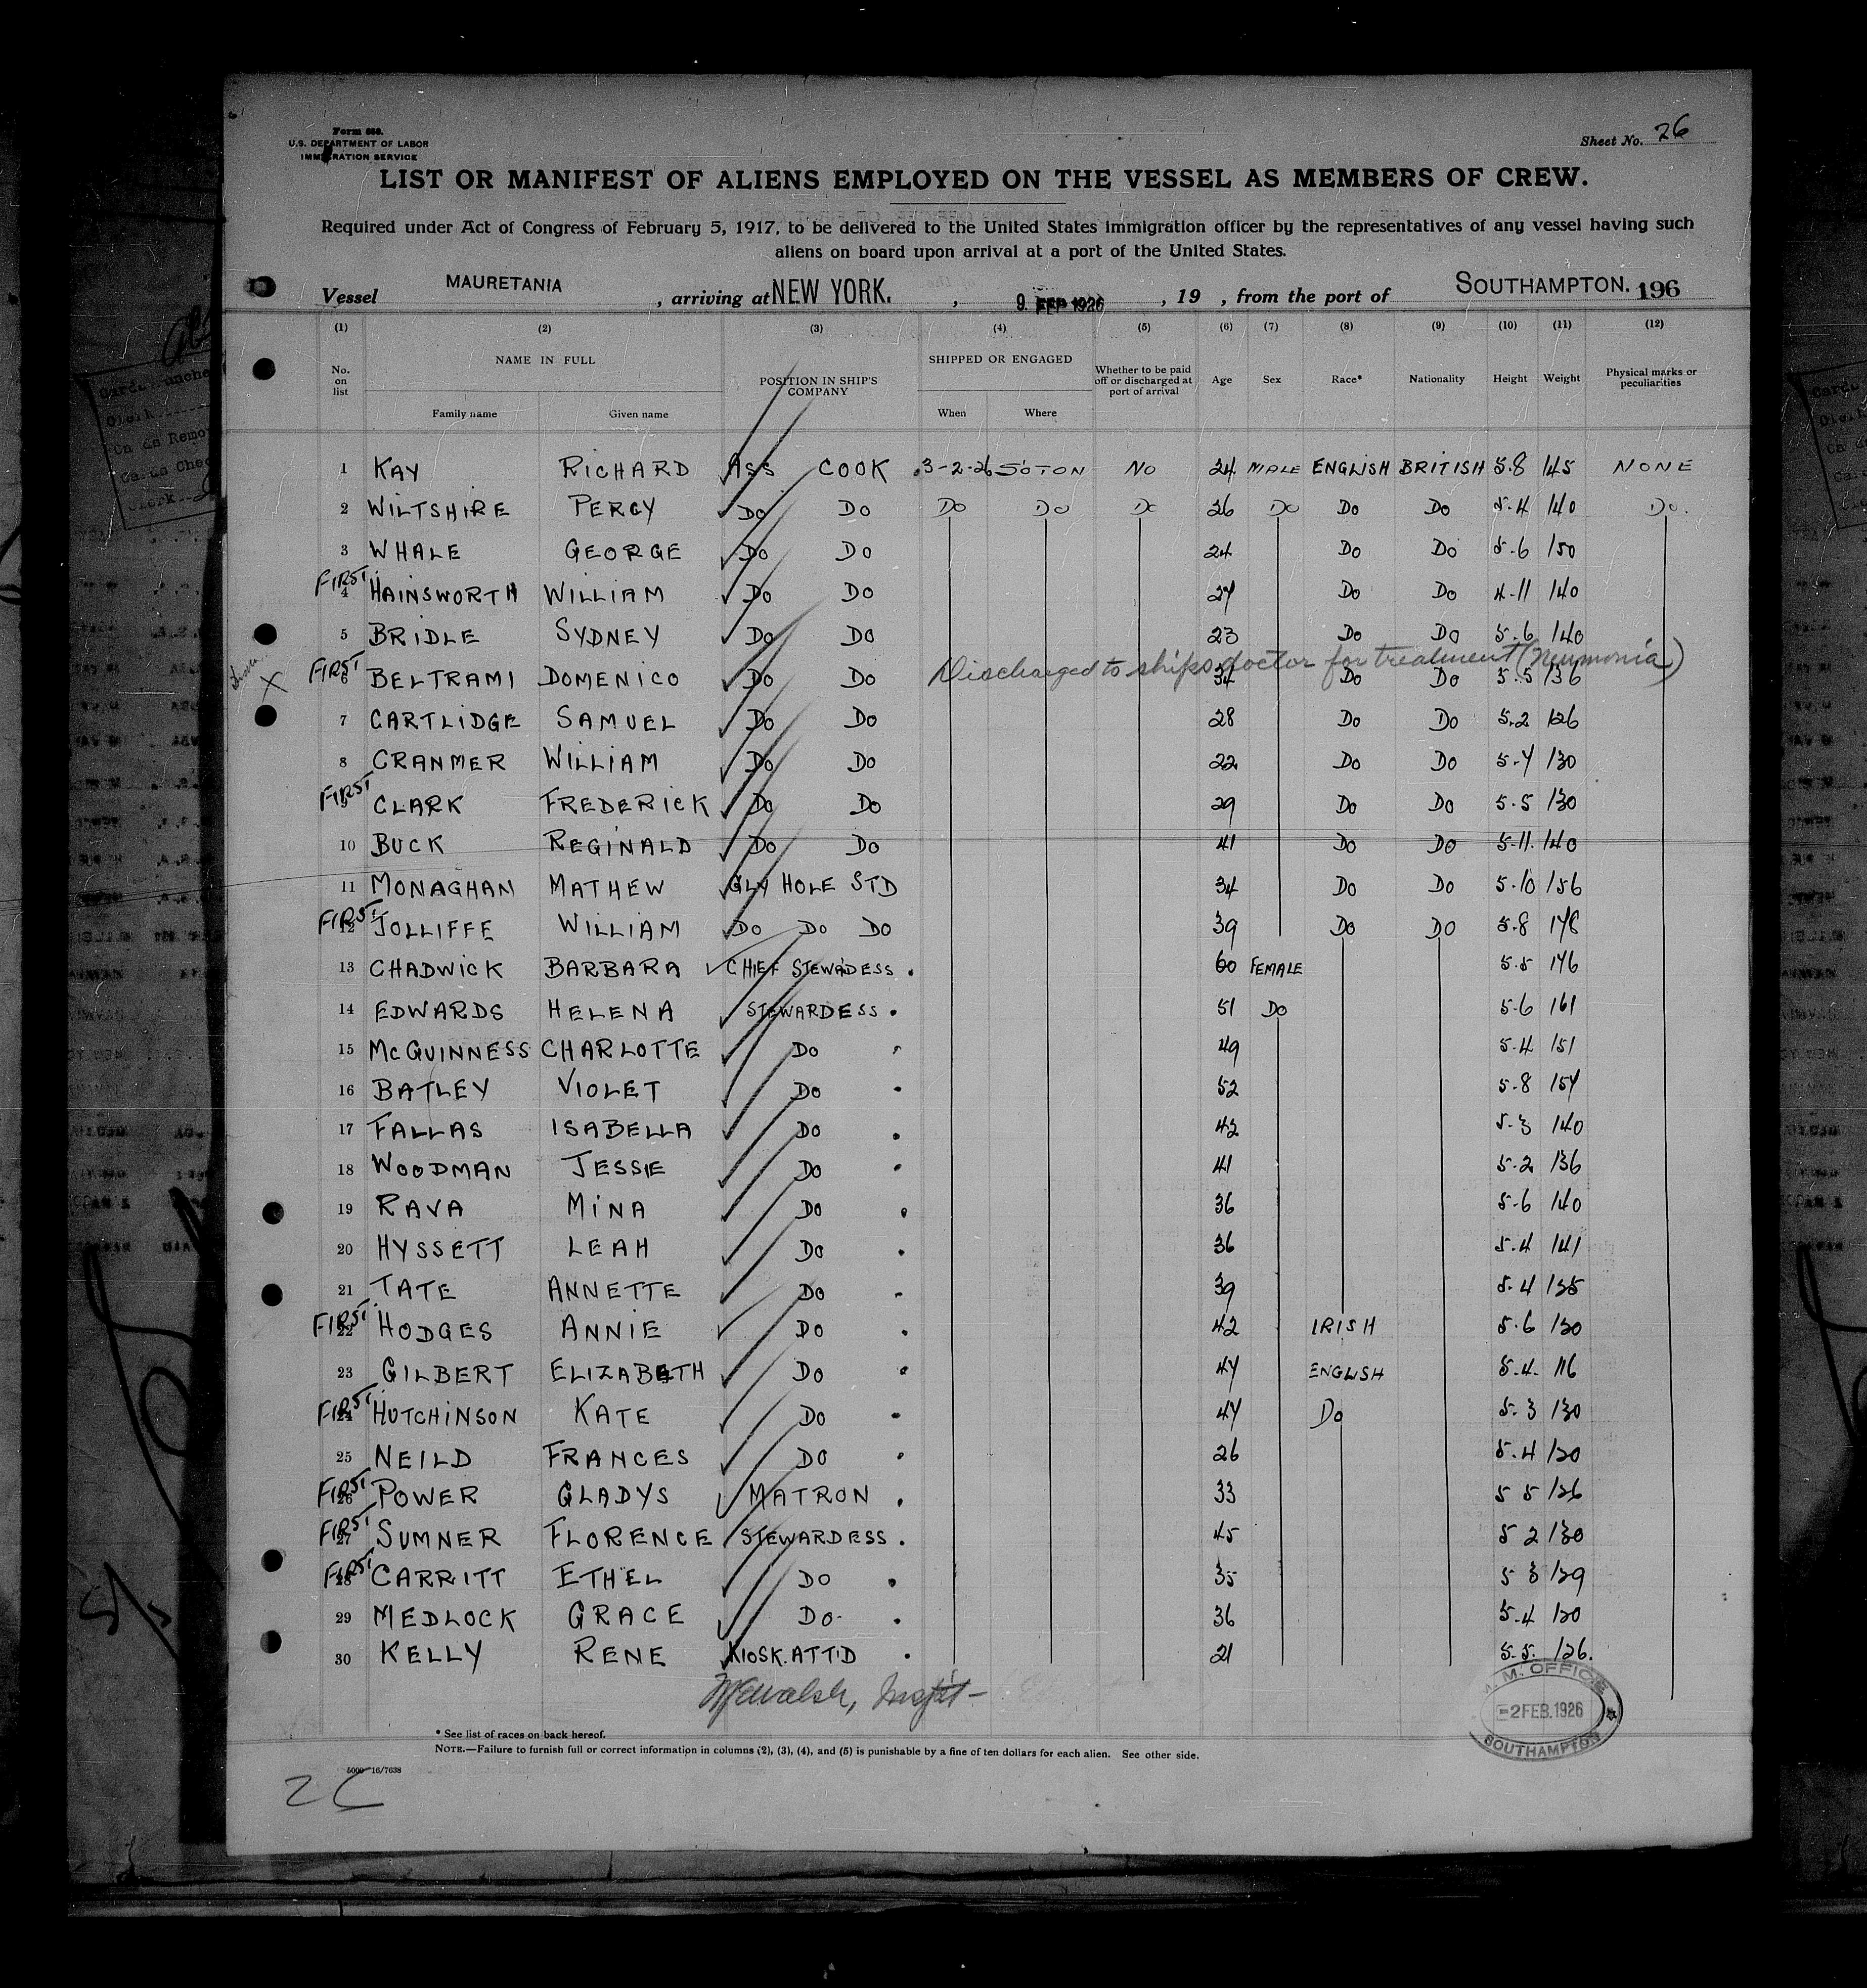 Form 688.
U.S. DEPARTMENT OF LABOR
IMMIGRATION SERVICE
Sheet No. 26
LIST OR MANIFEST OF ALIENS EMPLOYED ON THE VESSEL AS MEMBERS OF CREW.
Required under Act of Congress of February 5, 1917, to be delivered to the United States immigration officer by the representatives of any vessel having such
aliens on board upon arrival at a port of the United States.
Vessel MAURETANIA, arriving at NEW YORK., 9. FEB 1926, 19 , from the port of SOUTHAMPTON. 196
(1) (2) (3) (4) (5) (6) (7) (8) (9) (10) (11) (12)
No. on list NAME IN FULL Family name Given name POSITION IN SHIP'S COMPANY SHIPPED OR ENGAGED When Where Whether to be paid off or discharged at port of arrival Age Sex Race* Nationality Height Weight Physical marks or peculiarities
1 KAY RICHARD ASS COOK 3-2-26 SO'TON NO 24 MALE ENGLISH BRITISH 5.8 145 NONE
2 WILTSHIRE PERCY DO DO DO DO DO 26 DO DO DO 5-4 140 DO.
3 WHALE GEORGE DO DO 24 DO DO 5-6 150
FIRST 4 HAINSWORTH WILLIAM DO DO 27 DO DO 4-11 140
5 BRIDLE SYDNEY DO DO 23 DO DO 5-6 140
Discharged to ships doctor for treatment (Neumonia)
X FIRST 6 BELTRAMI DOMENICO DO DO 34 DO DO 5-5 136
7 CARTLIDGE SAMUEL DO DO 28 DO DO 5-2 126
8 CRANMER WILLIAM DO DO 22 DO DO 5-7 130
FIRST 9 CLARK FREDERICK DO DO 29 DO DO 5-5 130
10 BUCK REGINALD DO DO 41 DO DO 5-11. 140
11 MONAGHAN MATHEW GLY HOLE STD 34 DO DO 5-10 156
FIRST 12 JOLLIFFE WILLIAM DO DO DO 39 DO DO 5-8 178
13 CHADWICK BARBARA CHIEF STEWADESS. 60 FEMALE 5-5 176
14 EDWARDS HELENA STEWARDESS. 51 DO 5-6 161
15 McGUINNESS CHARLOTTE DO 49 5-4 151
16 BATLEY VIOLET DO 52 5-8 157
17 FALLAS ISABELLA DO 42 5-3 140
18 WOODMAN JESSIE DO 41 5-2 136
19 RAVA MINA DO 36 5-6 140
20 HYSSETT LEAH DO 36 5-4 141
21 TATE ANNETTE DO 39 5-4 135
FIRST 22 HODGES ANNIE DO 42 IRISH 5-6 130
23 GILBERT ELIZABETH DO 47 ENGLISH 5-4. 116
FIRST 24 HUTCHINSON KATE DO 47 DO 5-3 130
25 NEILD FRANCES DO 26 5-4 120
FIRST 26 POWER GLADYS MATRON. 33 5 5 126
FIRST 27 SUMNER FLORENCE STEWARDESS. 45 5 2 130
FIRST 28 CARRITT ETHEL DO 35 5 3 129
29 MEDLOCK GRACE DO 36 5-4 120
30 KELLY RENE KIOSK. ATTD 21 5-5. 126.
M. OFFICE
2 FEB. 1926
SOUTHAMPTON
* See list of races on back hereof.
NOTE.—Failure to furnish full or correct information in columns (2), (3), (4), and (5) is punishable by a fine of ten dollars for each alien. See other side.
5000 16/7638